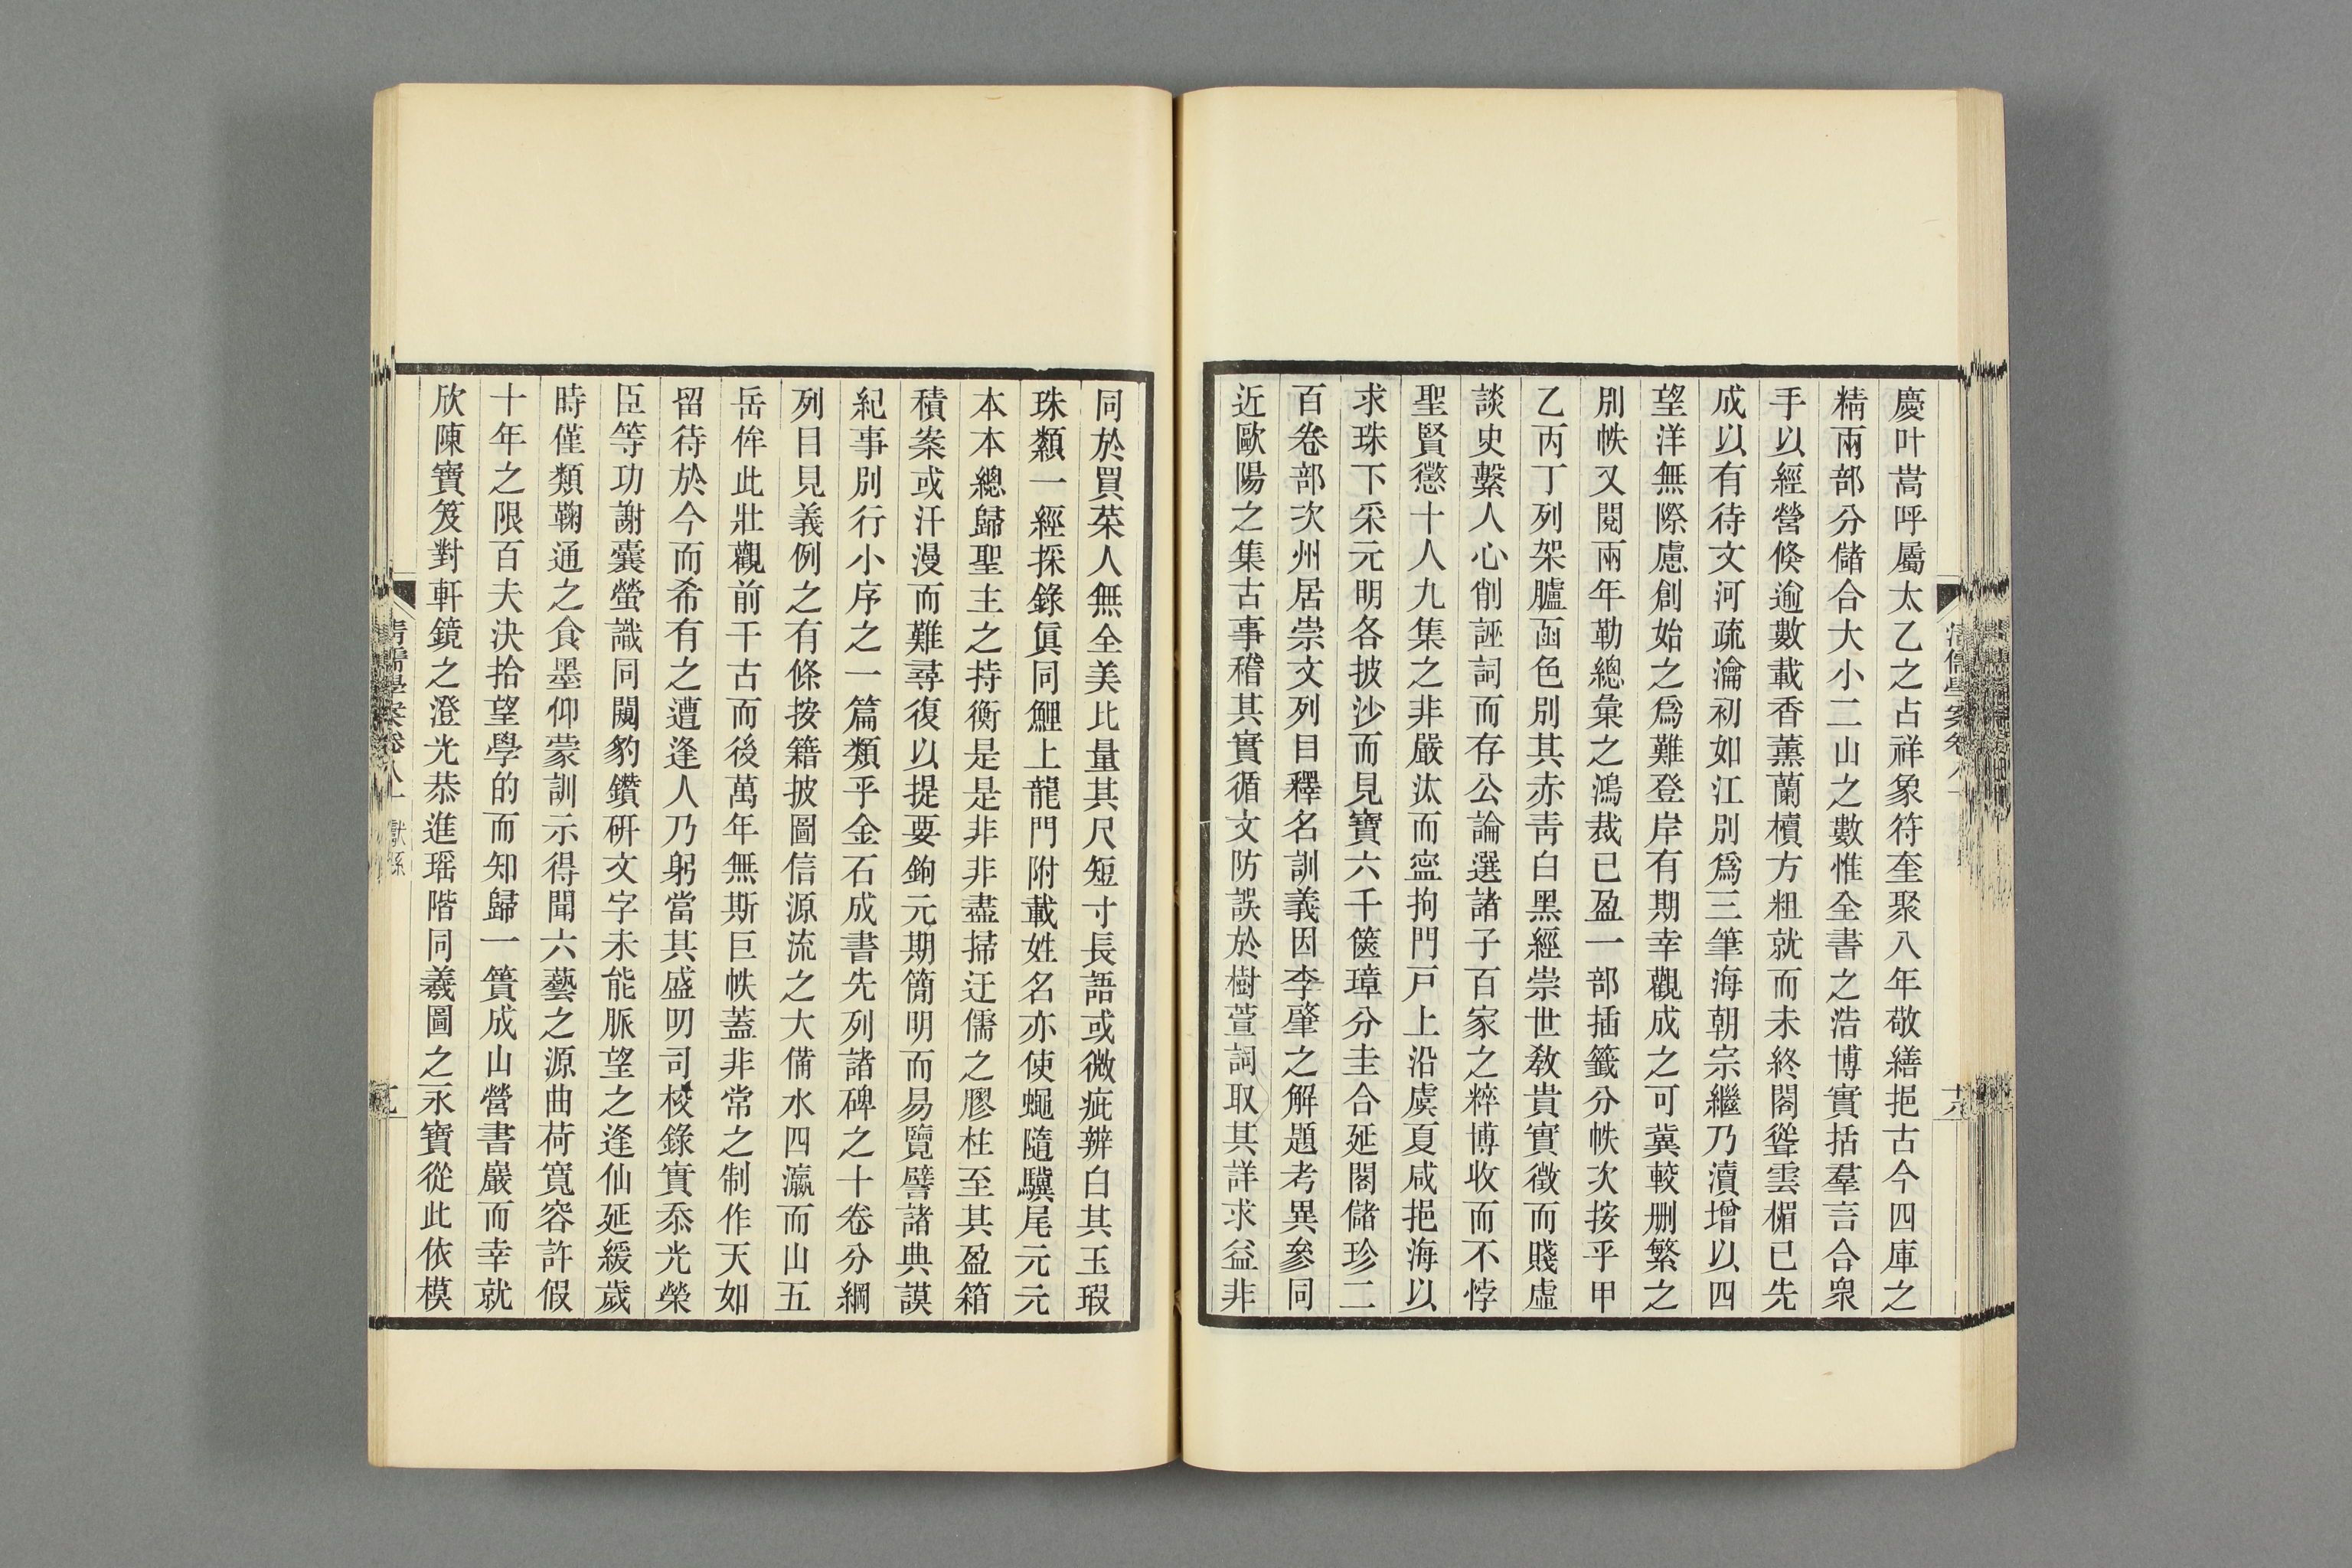 慶叶嵩呼屬太乙之占祥象符奎聚八年敬繕挹古今四庫之
精兩部分儲合大小二山之數惟全書之浩博實括羣言合衆
手以經營倐逾數載香薰蘭櫝方粗就而未終閣聳雲楣已先
成以有待文河疏瀹初如江別爲三筆海朝宗繼乃瀆增以四
望洋無際慮創始之爲難登岸有期幸觀成之可冀較删繁之
別帙又閱兩年勒總彙之鴻裁已盈一部插籤分帙次按乎甲
乙丙丁列架臚函色別其赤靑白黑經崇世敎貴實徵而賤虛
談史繫人心削誣詞而存公論選諸子百家之粹博收而不悖
聖賢懲十人九集之非嚴汰而寍拘門戸上沿虞夏咸挹海以
求珠下采元明各披沙而見寶六千篋璋分圭合延閣儲珍二
百卷部次州居崇文列目釋名訓義因李肇之解題考異參同
近歐陽之集古事稽其實循文防誤於樹萱詞取其詳求益非
同於買菜人無全美比量其尺短寸長語或微疵辨白其玉瑕
珠纇一經採錄眞同鯉上龍門附載姓名亦使蠅隨驥尾元元
本本總歸聖主之持衡是是非非盡掃迂儒之膠柱至其盈箱
積案或汗漫而難尋復以提要鉤元期簡明而易覽譬諸典謨
紀事別行小序之一篇類乎金石成書先列諸碑之十卷分綱
列目見義例之有條按籍披圖信源流之大備水四瀛而山五
岳侔此壯觀前千古而後萬年無斯巨帙蓋非常之制作天如
留待於今而希有之遭逢人乃躬當其盛叨司校錄實忝光榮
臣等功謝囊螢識同闚豹鑽硏文字未能脈望之逢仙延緩歲
時僅類鞠通之食墨仰蒙訓示得聞六藝之源曲荷寬容許假
十年之限百夫決拾望學的而知歸一簣成山營書巖而幸就
欣陳寶笈對軒鏡之澄光恭進瑶階同羲圖之永寶從此依模